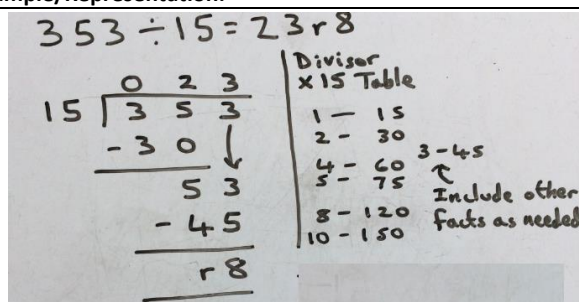 mple/Representation:
353÷15=23r8
0 2 3
15 3 5 3
- 3 0 ↓
5 3
- 4 5
r 8
Divisor
×15 Table
1 — 15
2 - 30
4 - 60
5 - 75
8 - 120
10 - 150
3 - 45
↑
Include other
facts as needed